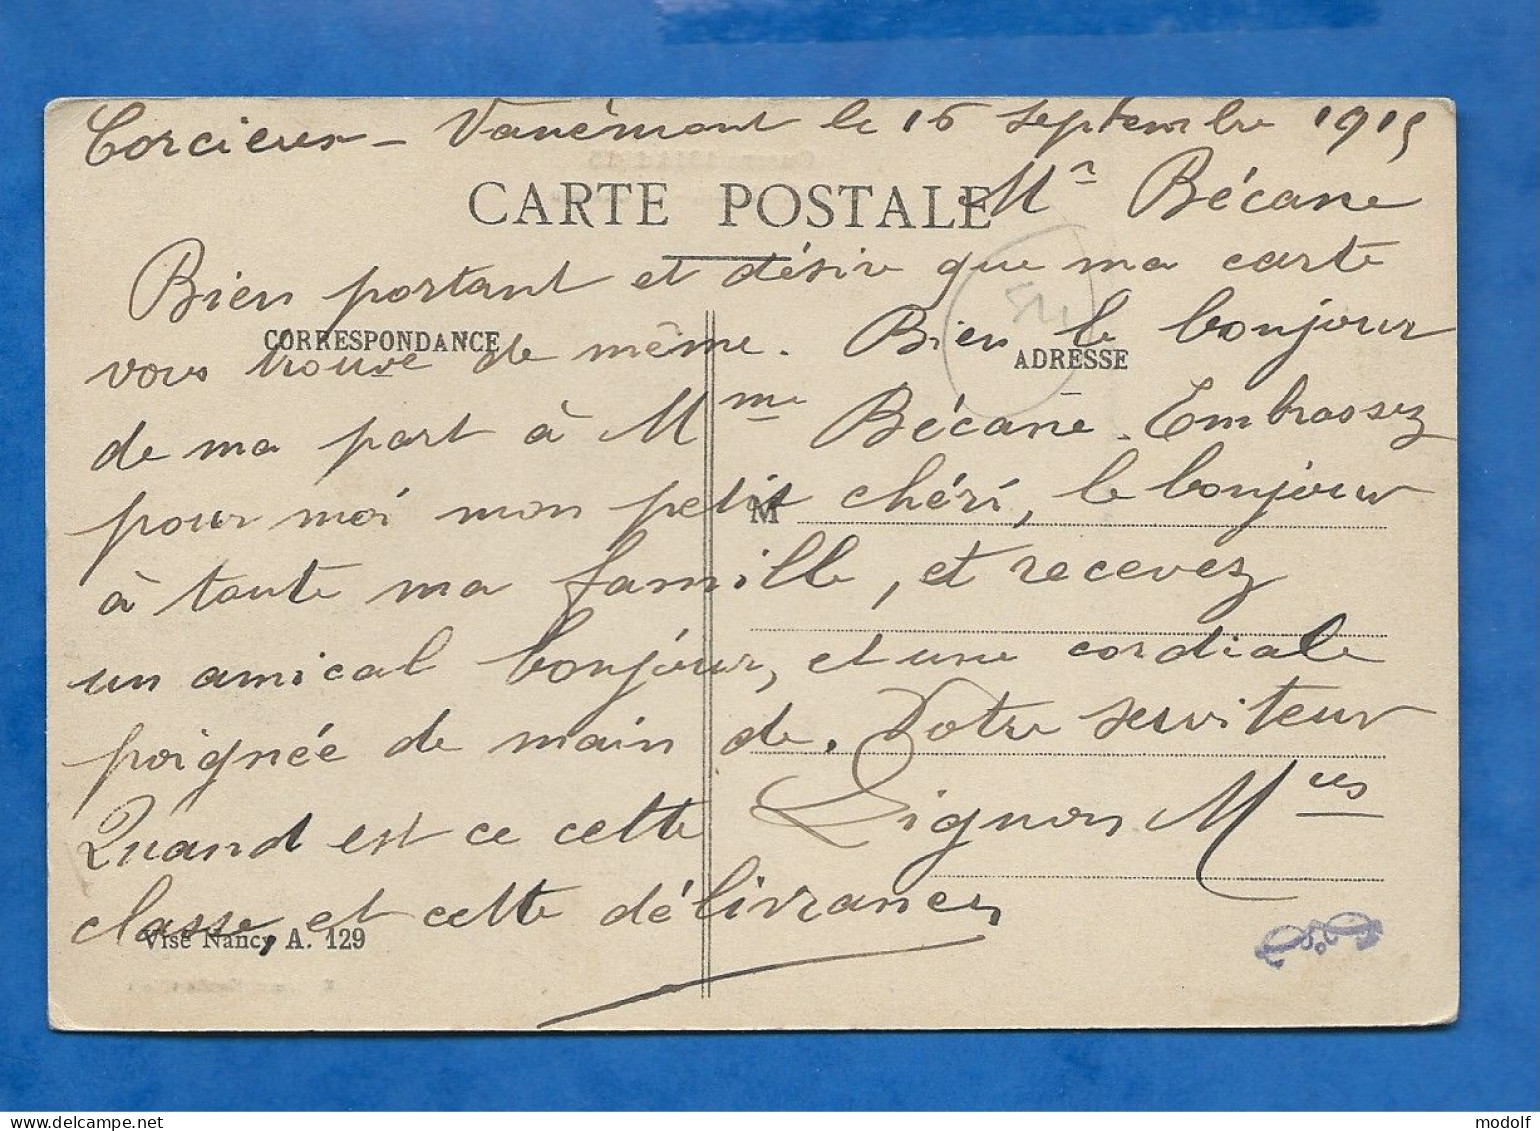 Corcieux - Vanémont le 16 septembre 1915
CARTE POSTALE
Mr Bécane
Bien portant et désire que ma carte
CORRESPONDANCE
ADRESSE
vous trouve de même. Bien le bonjour
de ma part à Mme Bécane. Embrassez
pour moi mon petit chéri, le bonjour
M
à toute ma famille, et recevez
un amical bonjour, et une cordiale
poignée de main de. Votre serviteur
Quand est ce cette Dignon Mus
classe, et cette délivrance,
Visé Nancy, A. 129
modolf